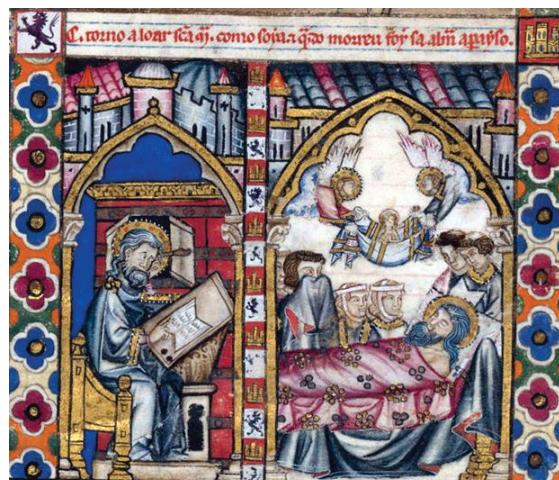 C. torno a loar scã m̃. como soya. ⁊ q̃do morreu foy sa alm̃ a ꝑayso.